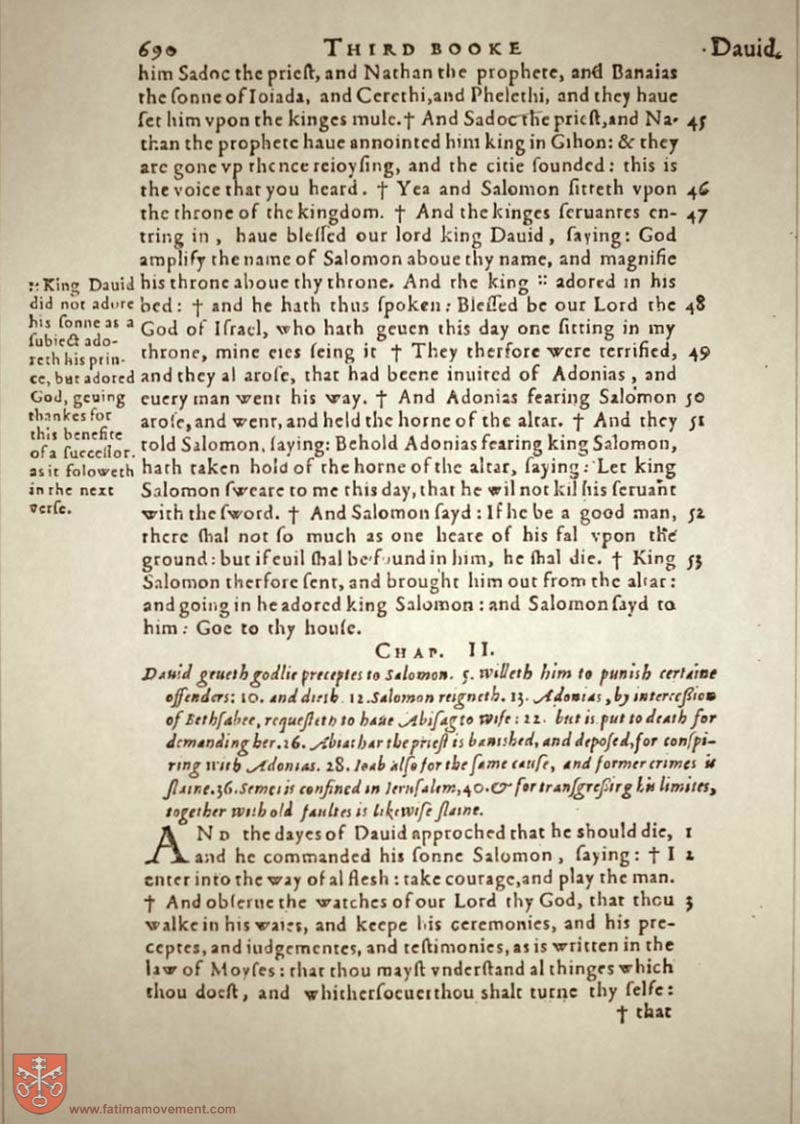 690 THIRD BOOKE Dauid.
him Sadoc the prieſt, and Nathan the prophete, and Banaias
the ſonne of Ioiada, and Cerethi, and Phelethi, and they haue
ſet him vpon the kinges mule. † And Sadoc the prieſt, and Na- 45
than the prophete haue annointed him king in Gihon: & they
are gone vp thence reioyſing, and the citie ſounded: this is
the voice that you heard. † Yea and Salomon ſitteth vpon 46
the throne of the kingdom. † And the kinges ſeruantes en- 47
tring in, haue bleſſed our lord king Dauid, ſaying: God
amplify the name of Salomon aboue thy name, and magnifie
his throne aboue thy throne. And the king :: adored in his
bed: † and he hath thus ſpoken: Bleſſed be our Lord the 48
God of Iſrael, who hath geuen this day one ſitting in my
throne, mine eies ſeing it † They therfore were terrified, 49
and they al aroſe, that had beene inuited of Adonias, and
euery man went his way. † And Adonias fearing Salomon 50
aroſe, and went, and held the horne of the altar. † And they 51
told Salomon, ſaying: Behold Adonias fearing king Salomon,
hath taken hold of the horne of the altar, ſaying: Let king
Salomon ſweare to me this day, that he wil not kil his ſeruant
with the ſword. † And Salomon ſayd: If he be a good man, 52
there ſhal not ſo much as one heare of his fal vpon the
ground: but if euil ſhal be found in him, he ſhal die. † King 53
Salomon therfore ſent, and brought him out from the altar:
and going in he adored king Salomon: and Salomon ſayd to
him: Goe to thy houſe.
:: King Dauid
did not adore
his ſonne as a
ſubiect ado-
reth his prin-
ce, but adored
God, geuing
thankes for
this benefite
of a ſucceſſor.
as it foloweth
in the next
verſe.
CHAP. II.
Dauid geueth godlie preceptes to Salomon. 5. willeth him to punish certaine
offenders: 10. and dieth. 12. Salomon reigneth. 13. Adonias, by interceßion
of Bethſabee, requeſteth to haue Abiſag to wife: 22. but is put to death for
demanding her. 26. Abiathar the prieſt is banished, and depoſed, for conſpi-
ring with Adonias. 28. Ioab alſo for the ſame cauſe, and former crimes is
ſlaine. 36. Semei is confined in Ieruſalem, 40. & for tranſgreßing his limites,
together with old faultes is likewiſe ſlaine.
AND the dayes of Dauid approched that he should die, 1
and he commanded his ſonne Salomon, ſaying: † I 2
enter into the way of al flesh: take courage, and play the man.
† And obſerue the watches of our Lord thy God, that thou 3
walke in his waies, and keepe his ceremonies, and his pre-
ceptes, and iudgementes, and teſtimonies, as is written in the
law of Moyſes: that thou mayſt vnderſtand al thinges which
thou doeſt, and whitherſoeuer thou shalt turne thy ſelfe:
† that
www.fatimamovement.com